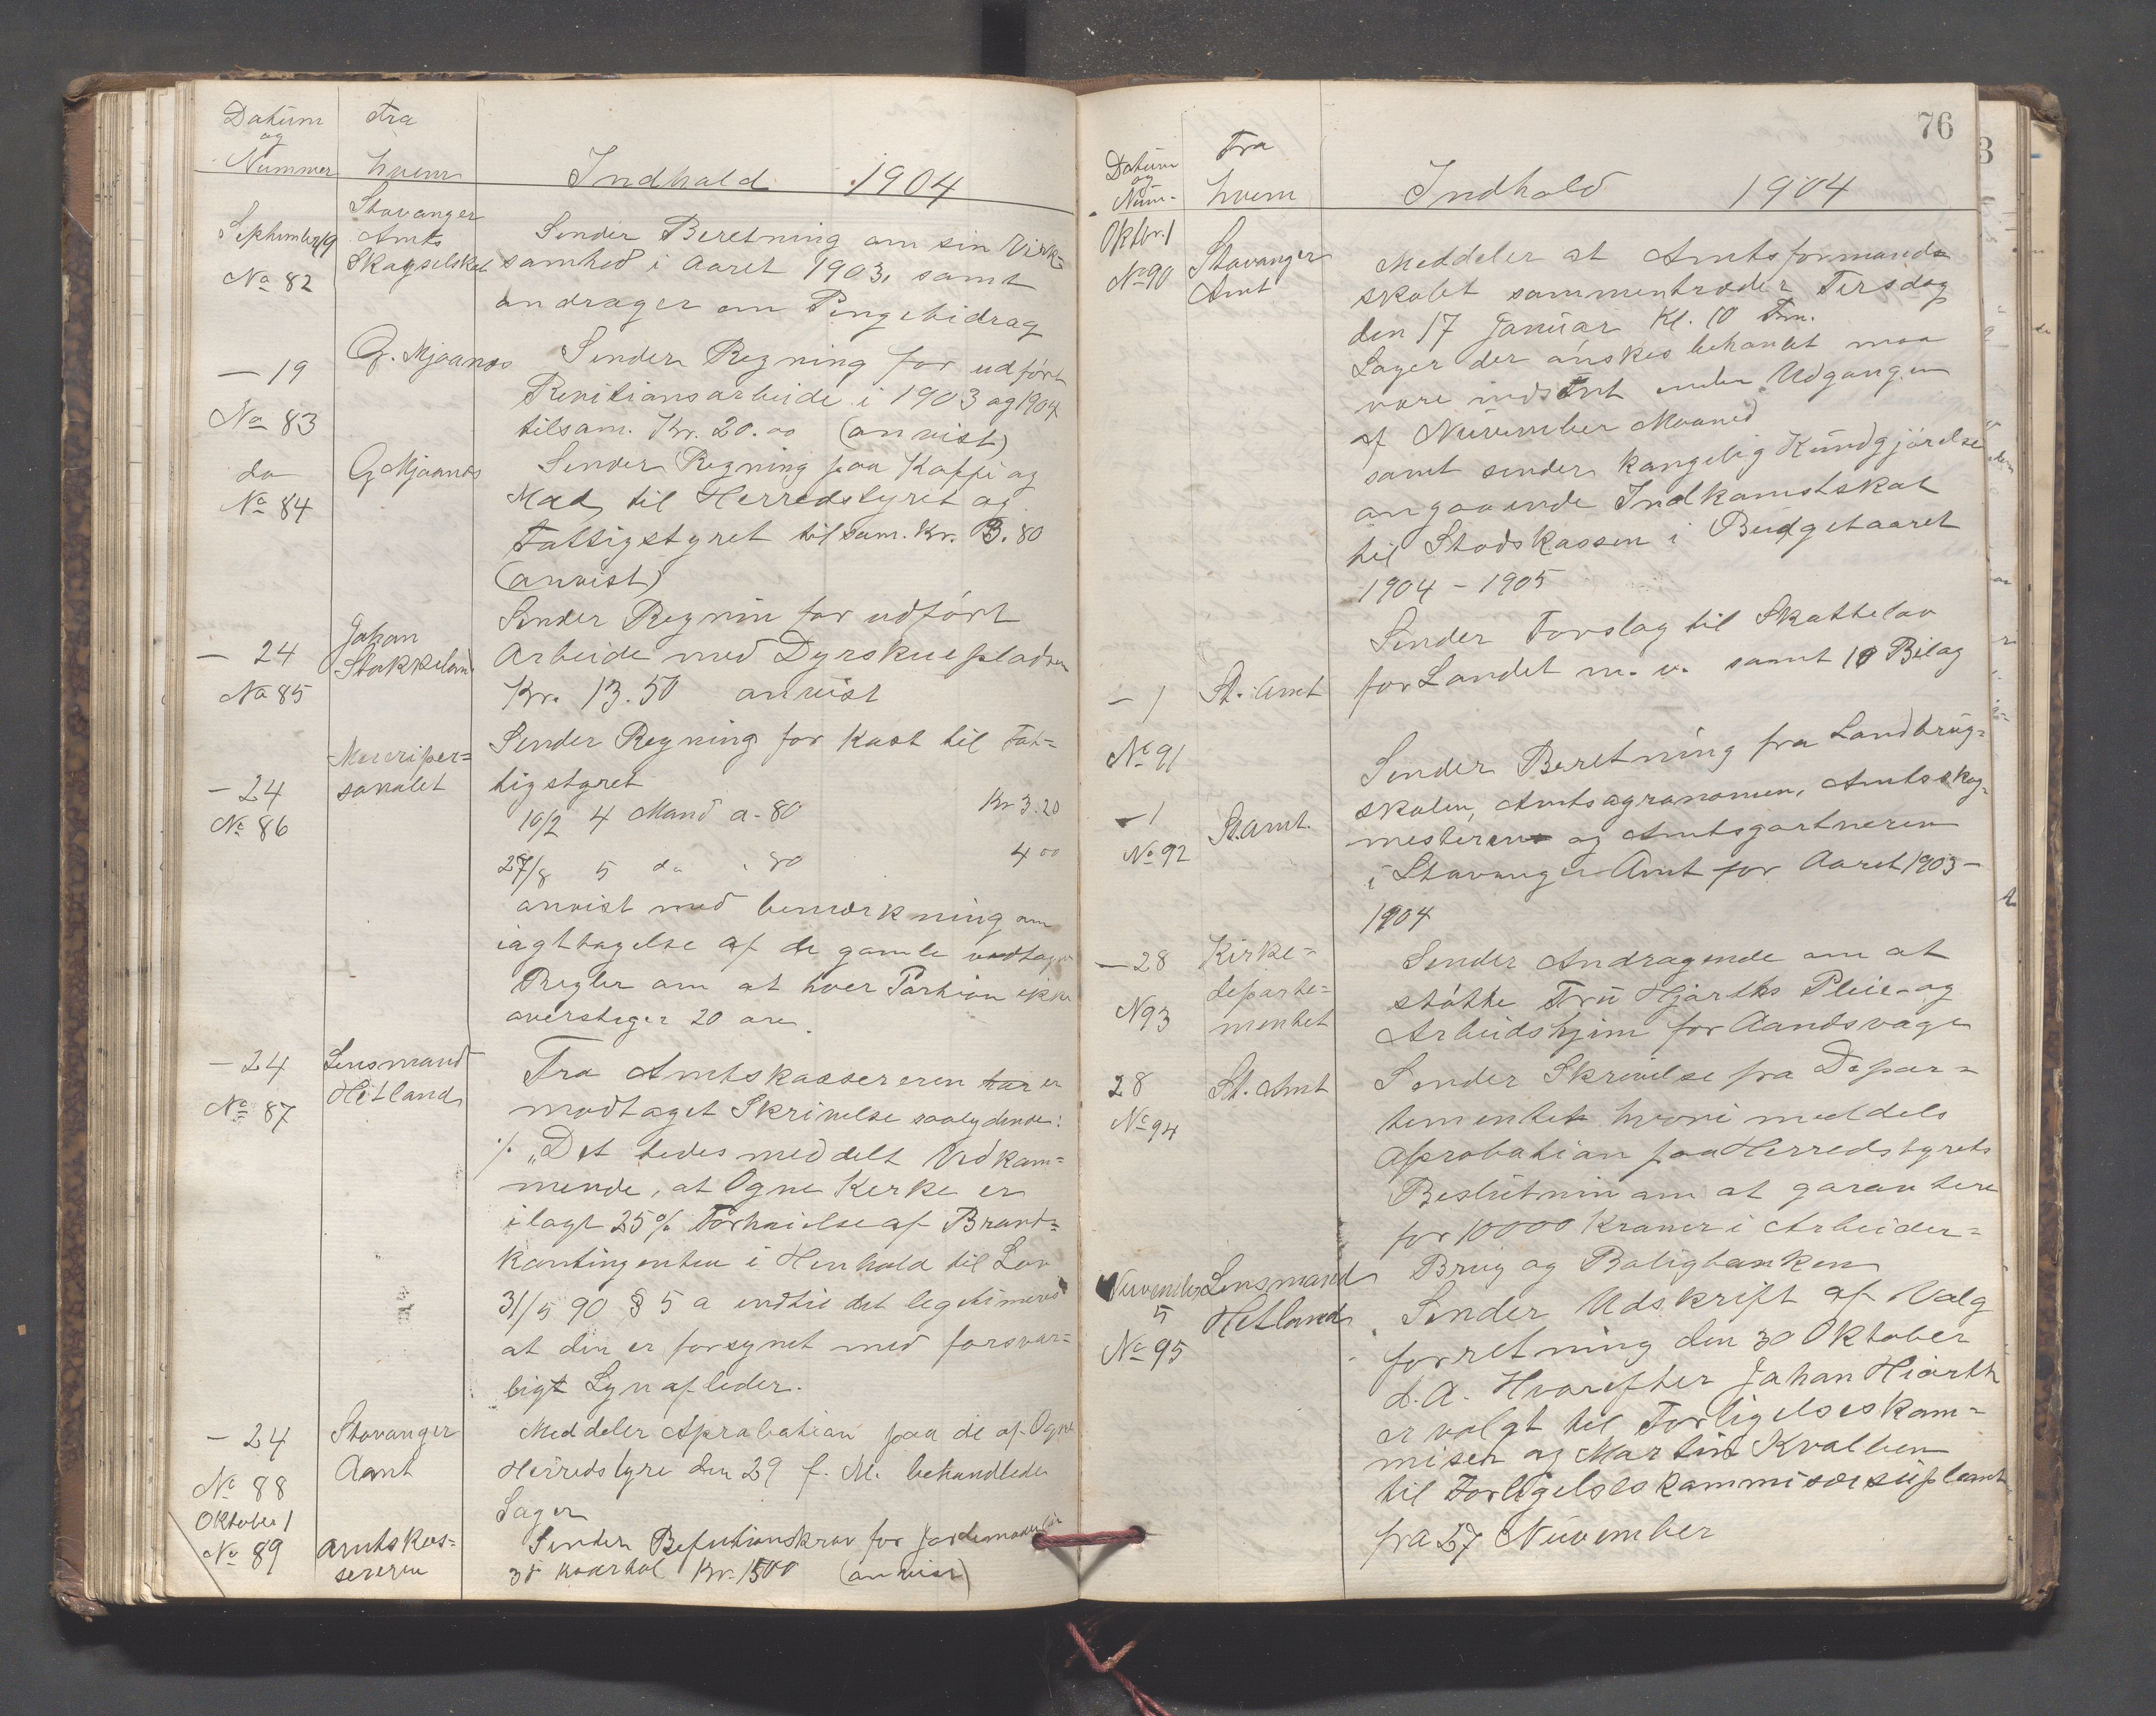 Datum
og
Nummer
Fra
hvem
Indhold 1904
September 19
No 82
Stavanger
Amts
Skogselskab
Sender Beretning om sin Virk=
samhed i Aaret 1903, samt
andrager om Pengebidrag
— 19
No 83
G. Mjaanes
Sender Regning for udført
Revisionsarbeide i 1903 og 1904
tilsam. Kr. 20.00 (anvist)
do
No 84
G Mjaanes
Sender Regning paa Kaffe og
Mad til Herredstyret og
Fattigstyret tilsam. Kr. 3.80
(anvist)
— 24
No 85
Johan
Stokkeland
Sender Regnin for udført
Arbeide med Dyrskuepladsen
Kr. 13.50 anvist
— 24
No 86
Meieriper=
sonalet
Sender Regning for Kost til Fat=
tigstyret
10/2 4 Mand a - 80 Kr 3.20
27/8 5 do - 80 4 00
anvist med bemærkning om
iagttagelse af de gamle vedtagne
Regler om at hver Portion ikke
overstiger 20 øre.
— 24
No 87
Lensmand
Hetland
Fra Amtskassereren har er
modtaget Skrivelse saalydende:
./. „Det bedes meddelt Vedkom=
mende, at Ogne Kirke er
ilagt 25% Forhøielse af Brand=
kontingenten i Henhold til Lov
31/5 90 § 5 a indtil det legitimeres
at den er forsynet med forsvar=
ligt Lynafleder.
— 24
No 88
Stavanger
Aamt
Meddeler Aprobation paa de af Ogne
Herredstyre den 29 f. M. behandlede
Sager
Oktober 1
No 89
Amtskas=
sereren
Sender Refutionskrav for Jordemoderløn
3die kvartal Kr. 1500 (anvist)
76
Datum
og
Num-
Fra
hvem
Indhold 1904
Oktbr. 1
No 90
Stavanger
Amt
Meddeler at Amtsformands=
skabet sammentræder Tirsdag
den 17 Januar Kl. 10 Fm.
Sager der ønskes behandlet maa
være indsendt inden Udgangen
af November Maaned
samt sender kongelig Kundgjørelse
angaaende Indkomstskat
til Stadskassen i Budgetaaret
1904 - 1905
— 1
No 91
St. Amt
Sender Forslag til Skattelov
for Landet m. v. samt 10 Bilag
— 1
No 92
St. Amt.
Sender Beretning fra Landbrug=
skolen, Amtsagronomen, Amtsskog=
mesteren og Amtsgartneren
i Stavanger Amt for Aaret 1903 -
1904
— 28
N 93
Kirke=
departe=
mentet
Sender Andragende om at
støtte Fru Hjorths Pleie- og
Arbeidshjem for Aandsvage
28
No 94
St. Amt
Sender Skrivelse fra Depar=
tementet hvori meddels
Aprobation paa Herredstyrets
Beslutnin om at garantere
for 10000 Kroner i Arbeider=
Brug og Boligbanken
November
5
No 95
Lensmand
Hetland
Sender Udskrift af Valg
forretning den 30 Oktober
d. A. Hvorefter Johan Hiorth
er valgt til Forligelseskom=
misær og Martin Kvalben
til Forligelseskommisærsuplent
fra 27 November